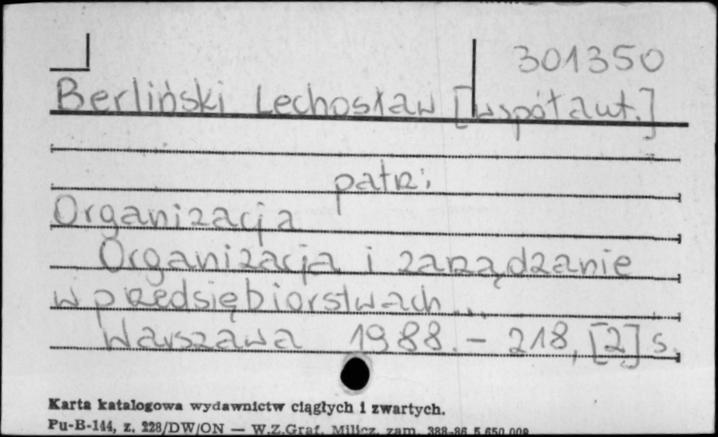 301350
Berliński Lechosław [współaut.]
patrz:
Organizacja
Organizacja i zarządzanie
w przedsiębiorstwach...
Warszawa 1988. - 218, [2] s.
Karta katalogowa wydawnictw ciągłych i zwartych.
Pu-B-144, z. 228/DW/ON — W.Z.Graf. Milicz, zam. 388-86 5.650.008